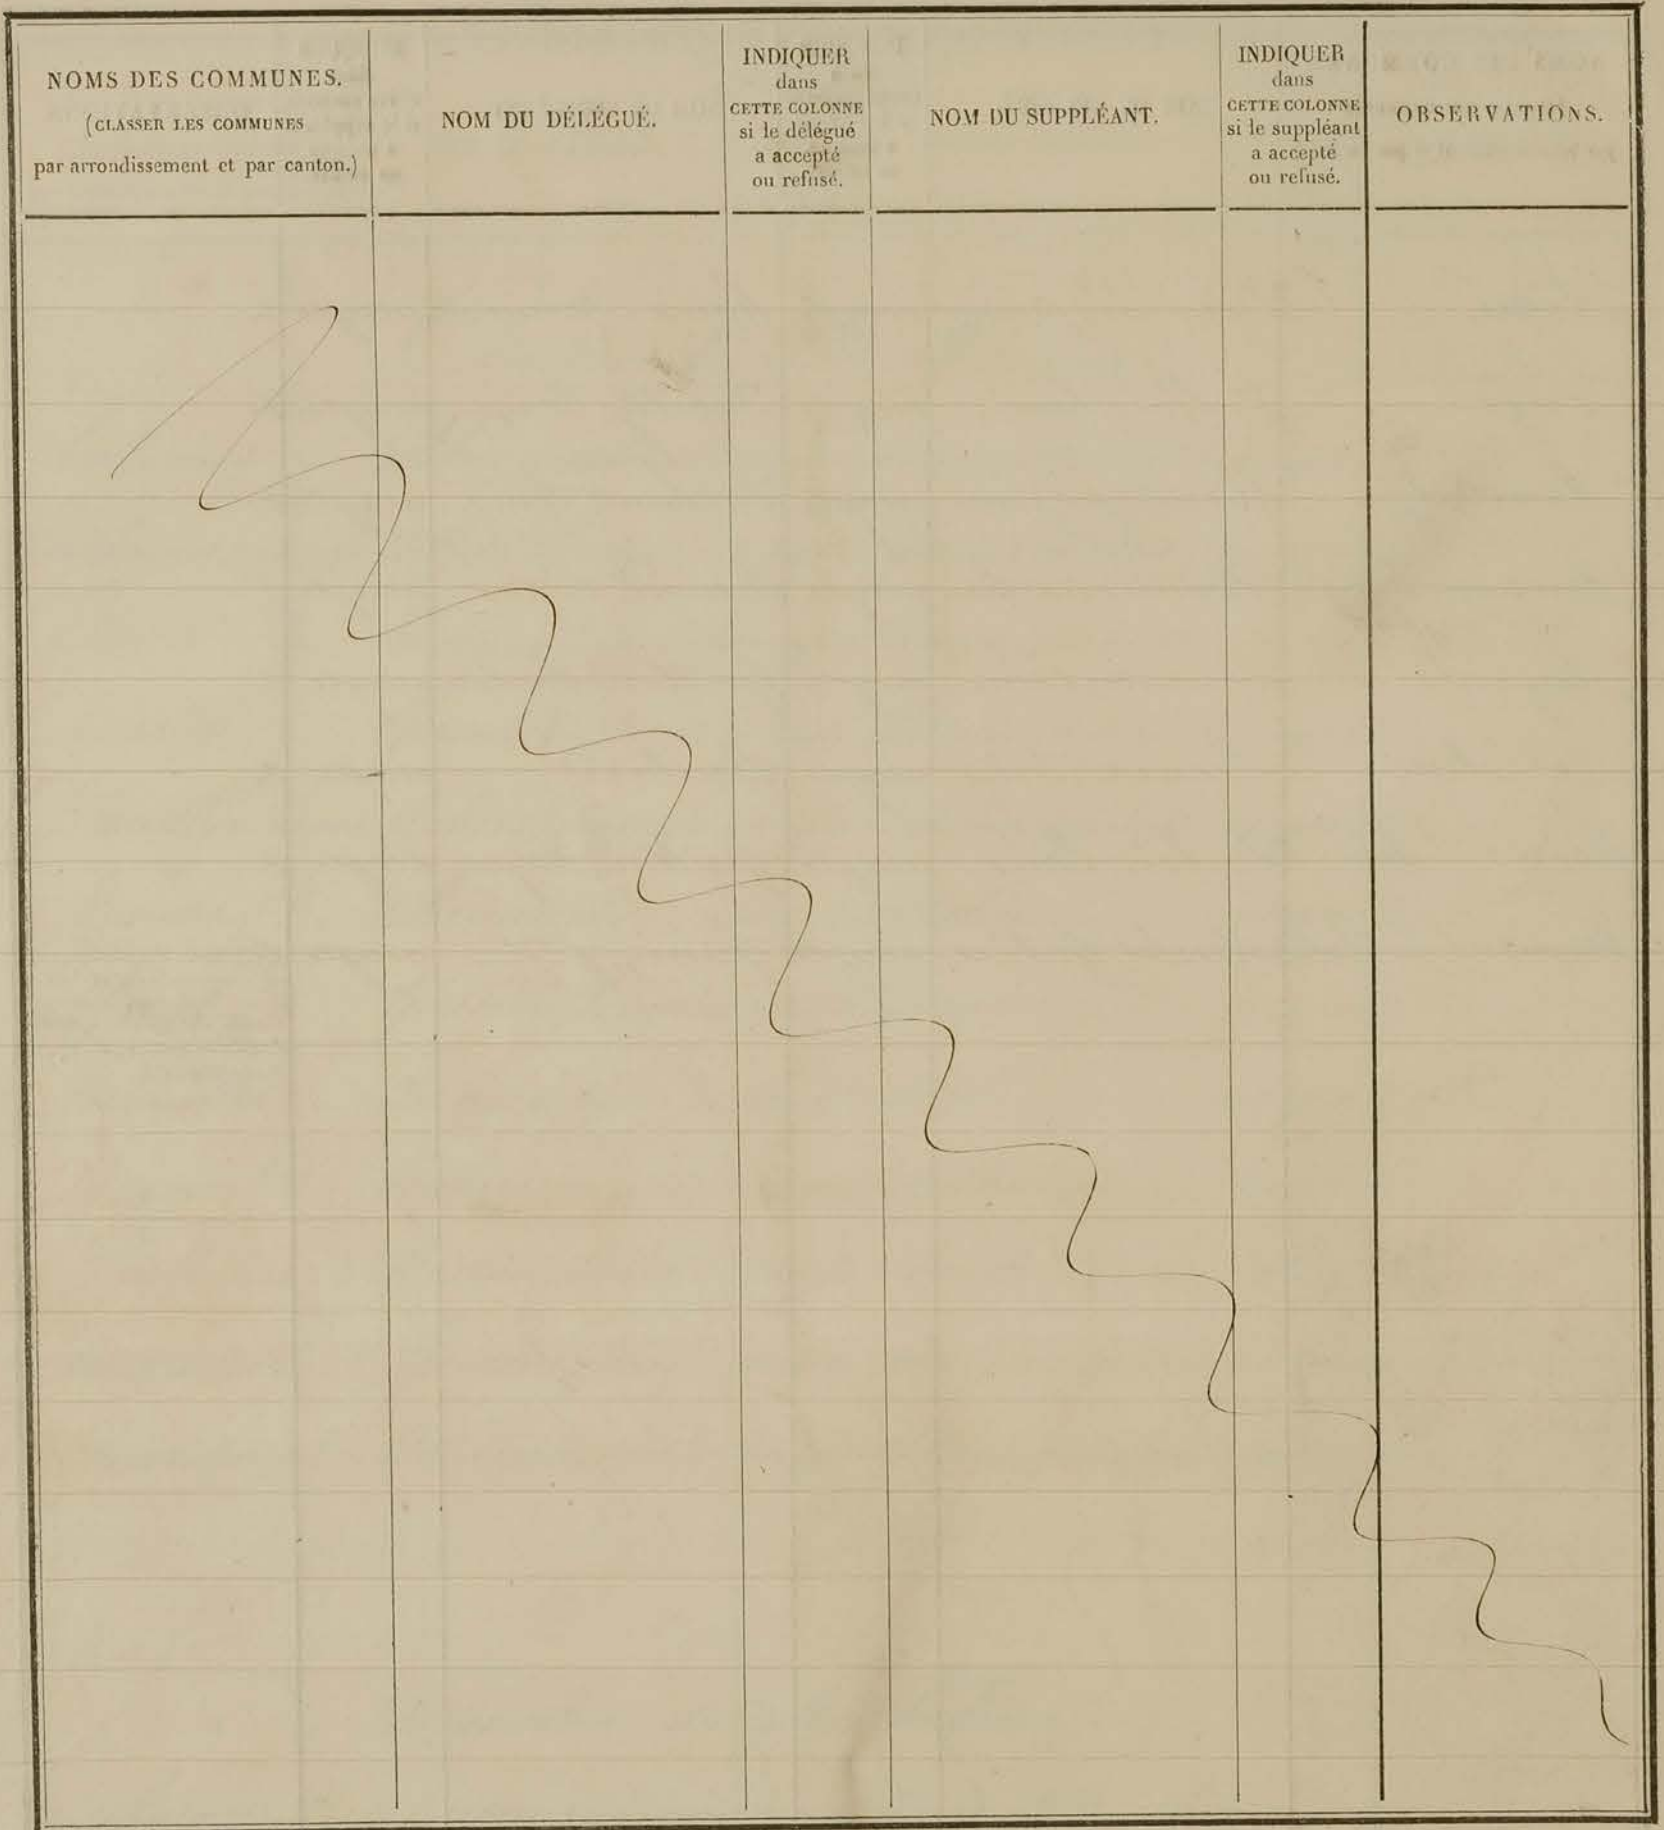 NOMS DES COMMUNES.
(CLASSER LES COMMUNES
par arrondissement et par canton.)
NOM DU DÉLÉGUÉ.
INDIQUER
dans
CETTE COLONNE
si le délégué
a accepté
ou refusé.
NOM DU SUPPLÉANT.
INDIQUER
dans
CETTE COLONNE
si le suppléant
a accepté
ou refusé.
OBSERVATIONS.